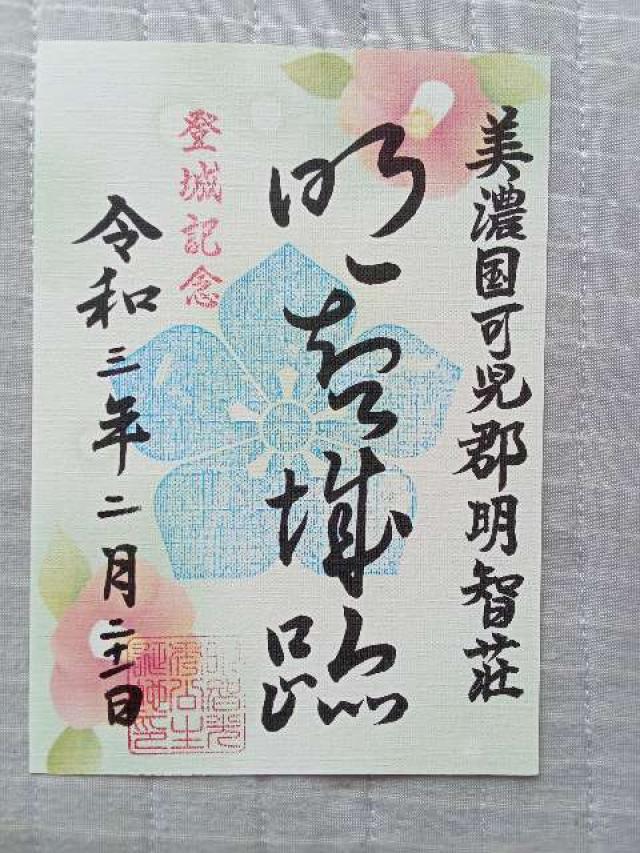 美濃国可児郡明智荘
明智城跡
登城記念
令和三年二月二十一日